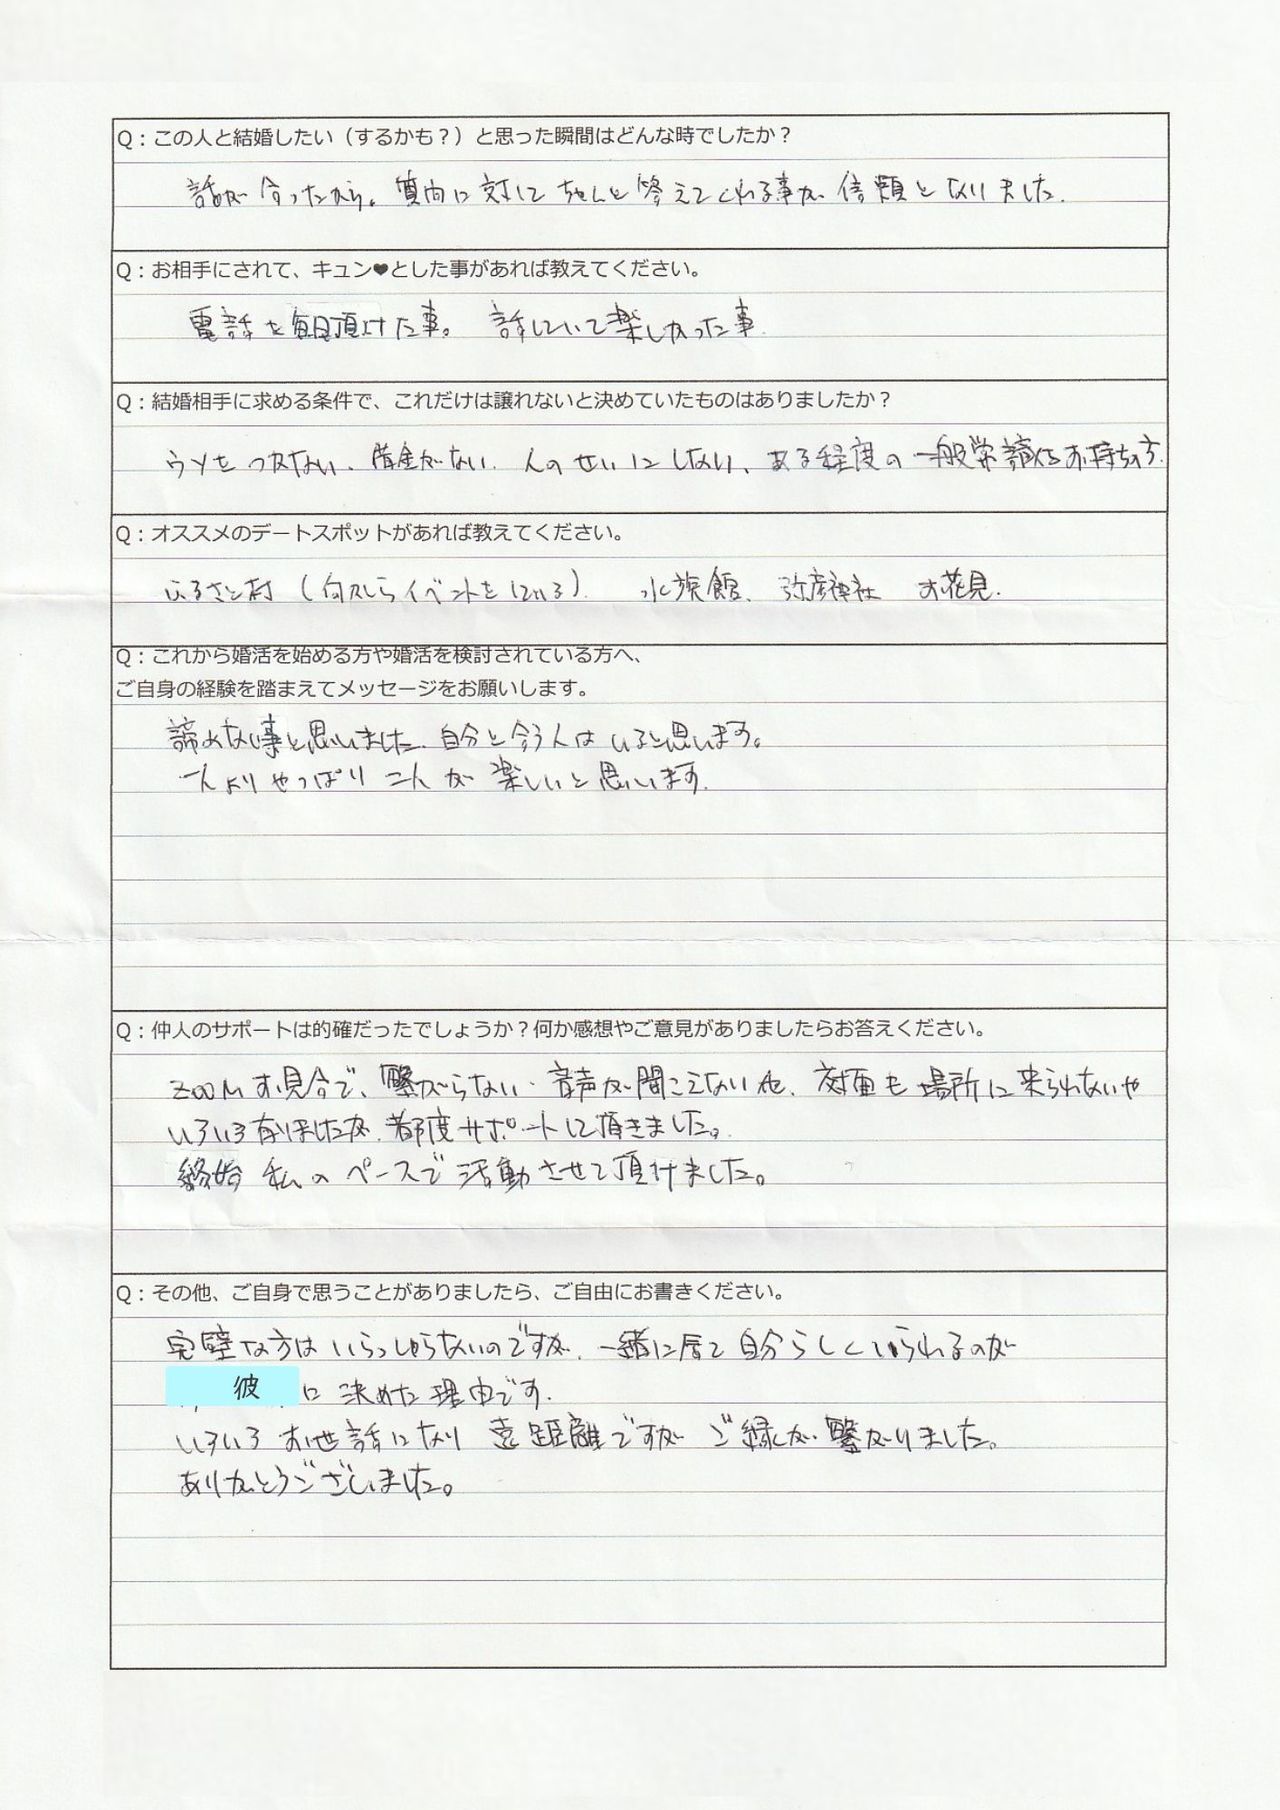 Q：この人と結婚したい（するかも？）と思った瞬間はどんな時でしたか？
話が合ったから。質問に対してちゃんと答えてくれる事が信頼となりました.
Q：お相手にされて、キュン❤とした事があれば教えてください。
電話を毎日頂けた事。 話していて楽しかった事.
Q：結婚相手に求める条件で、これだけは譲れないと決めていたものはありましたか？
ウソをつかない、借金がない. 人のせいにしない、ある程度の一般常識をお持ちの方.
Q：オススメのデートスポットがあれば教えてください。
ふるさと村（何かしらイベントをしている）. 水族館、弥彦神社 お花見.
Q：これから婚活を始める方や婚活を検討されている方へ、
ご自身の経験を踏まえてメッセージをお願いします。
諦めない事と思いました. 自分と合う人はいると思います。
一人よりやっぱり二人が楽しいと思います.
Q：仲人のサポートは的確だったでしょうか？何か感想やご意見がありましたらお答えください。
ZOOMお見合で、繋がらない・音声が聞こえない他、対面も場所に来られないや
いろいろありましたが、都度サポートして頂きました。
終始私のペースで活動させて頂けました。
Q：その他、ご自身で思うことがありましたら、ご自由にお書きください。
完璧な方はいらっしゃらないのですが、一緒に居て自分らしくいられるのが
彼に決めた理由です.
いろいろお世話になり 遠距離ですが ご縁が繋がりました。
ありがとうございました。